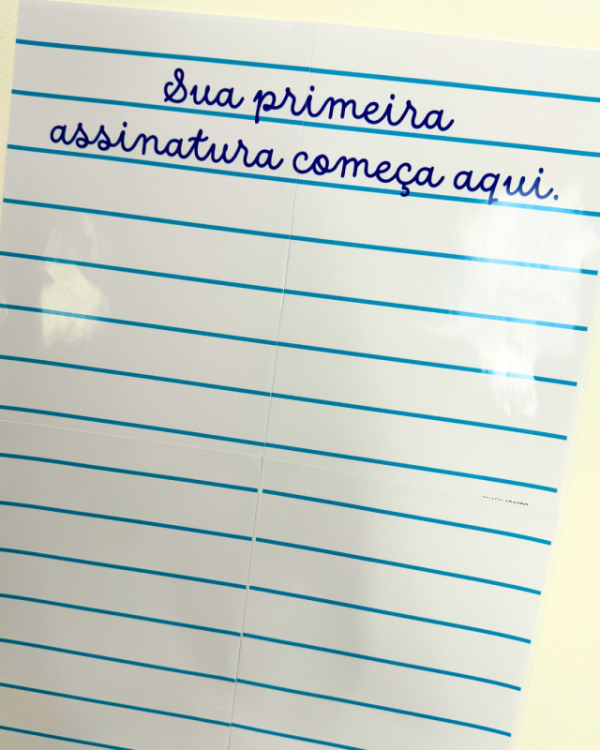 Sua primeira
assinatura começa aqui.